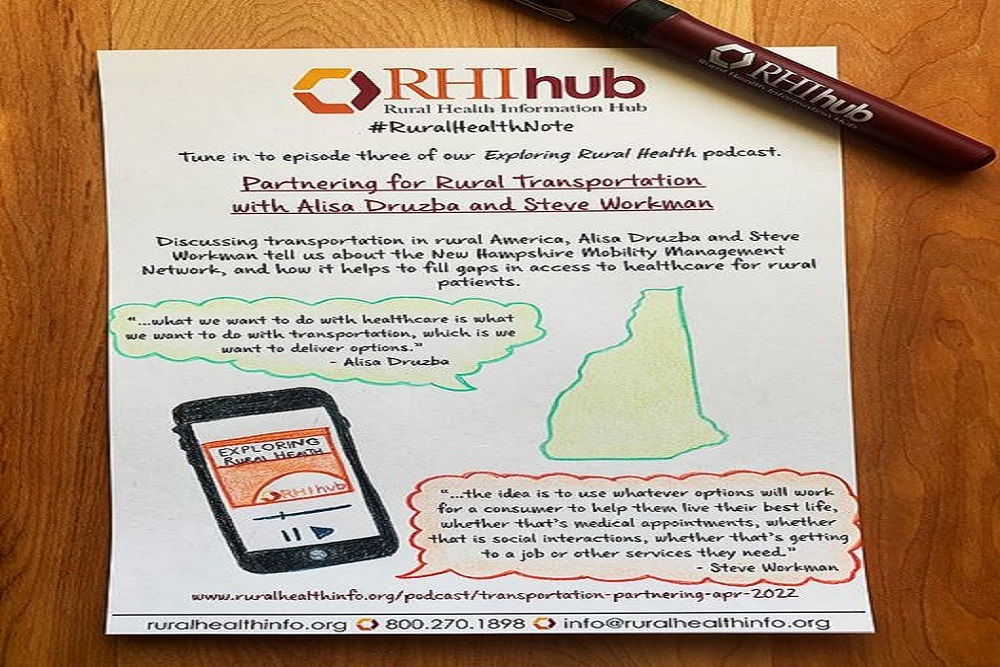 RHIhub
Rural Health Information Hub
RHIhub
Rural Health Information Hub
#RuralHealthNote
Tune in to episode three of our Exploring Rural Health podcast.
Partnering for Rural Transportation
with Alisa Druzba and Steve Workman
Discussing transportation in rural America, Alisa Druzba and Steve
Workman tell us about the New Hampshire Mobility Management
Network, and how it helps to fill gaps in access to healthcare for rural
patients.
"...what we want to do with healthcare is what
we want to do with transportation, which is we
want to deliver options."
- Alisa Druzba
EXPLORING
RURAL HEALTH
RHIhub
"...the idea is to use whatever options will work
for a consumer to help them live their best life,
whether that's medical appointments, whether
that is social interactions, whether that's getting
to a job or other services they need."
- Steve Workman
www.ruralhealthinfo.org/podcast/transportation-partnering-apr-2022
ruralhealthinfo.org 800.270.1898 info@ruralhealthinfo.org